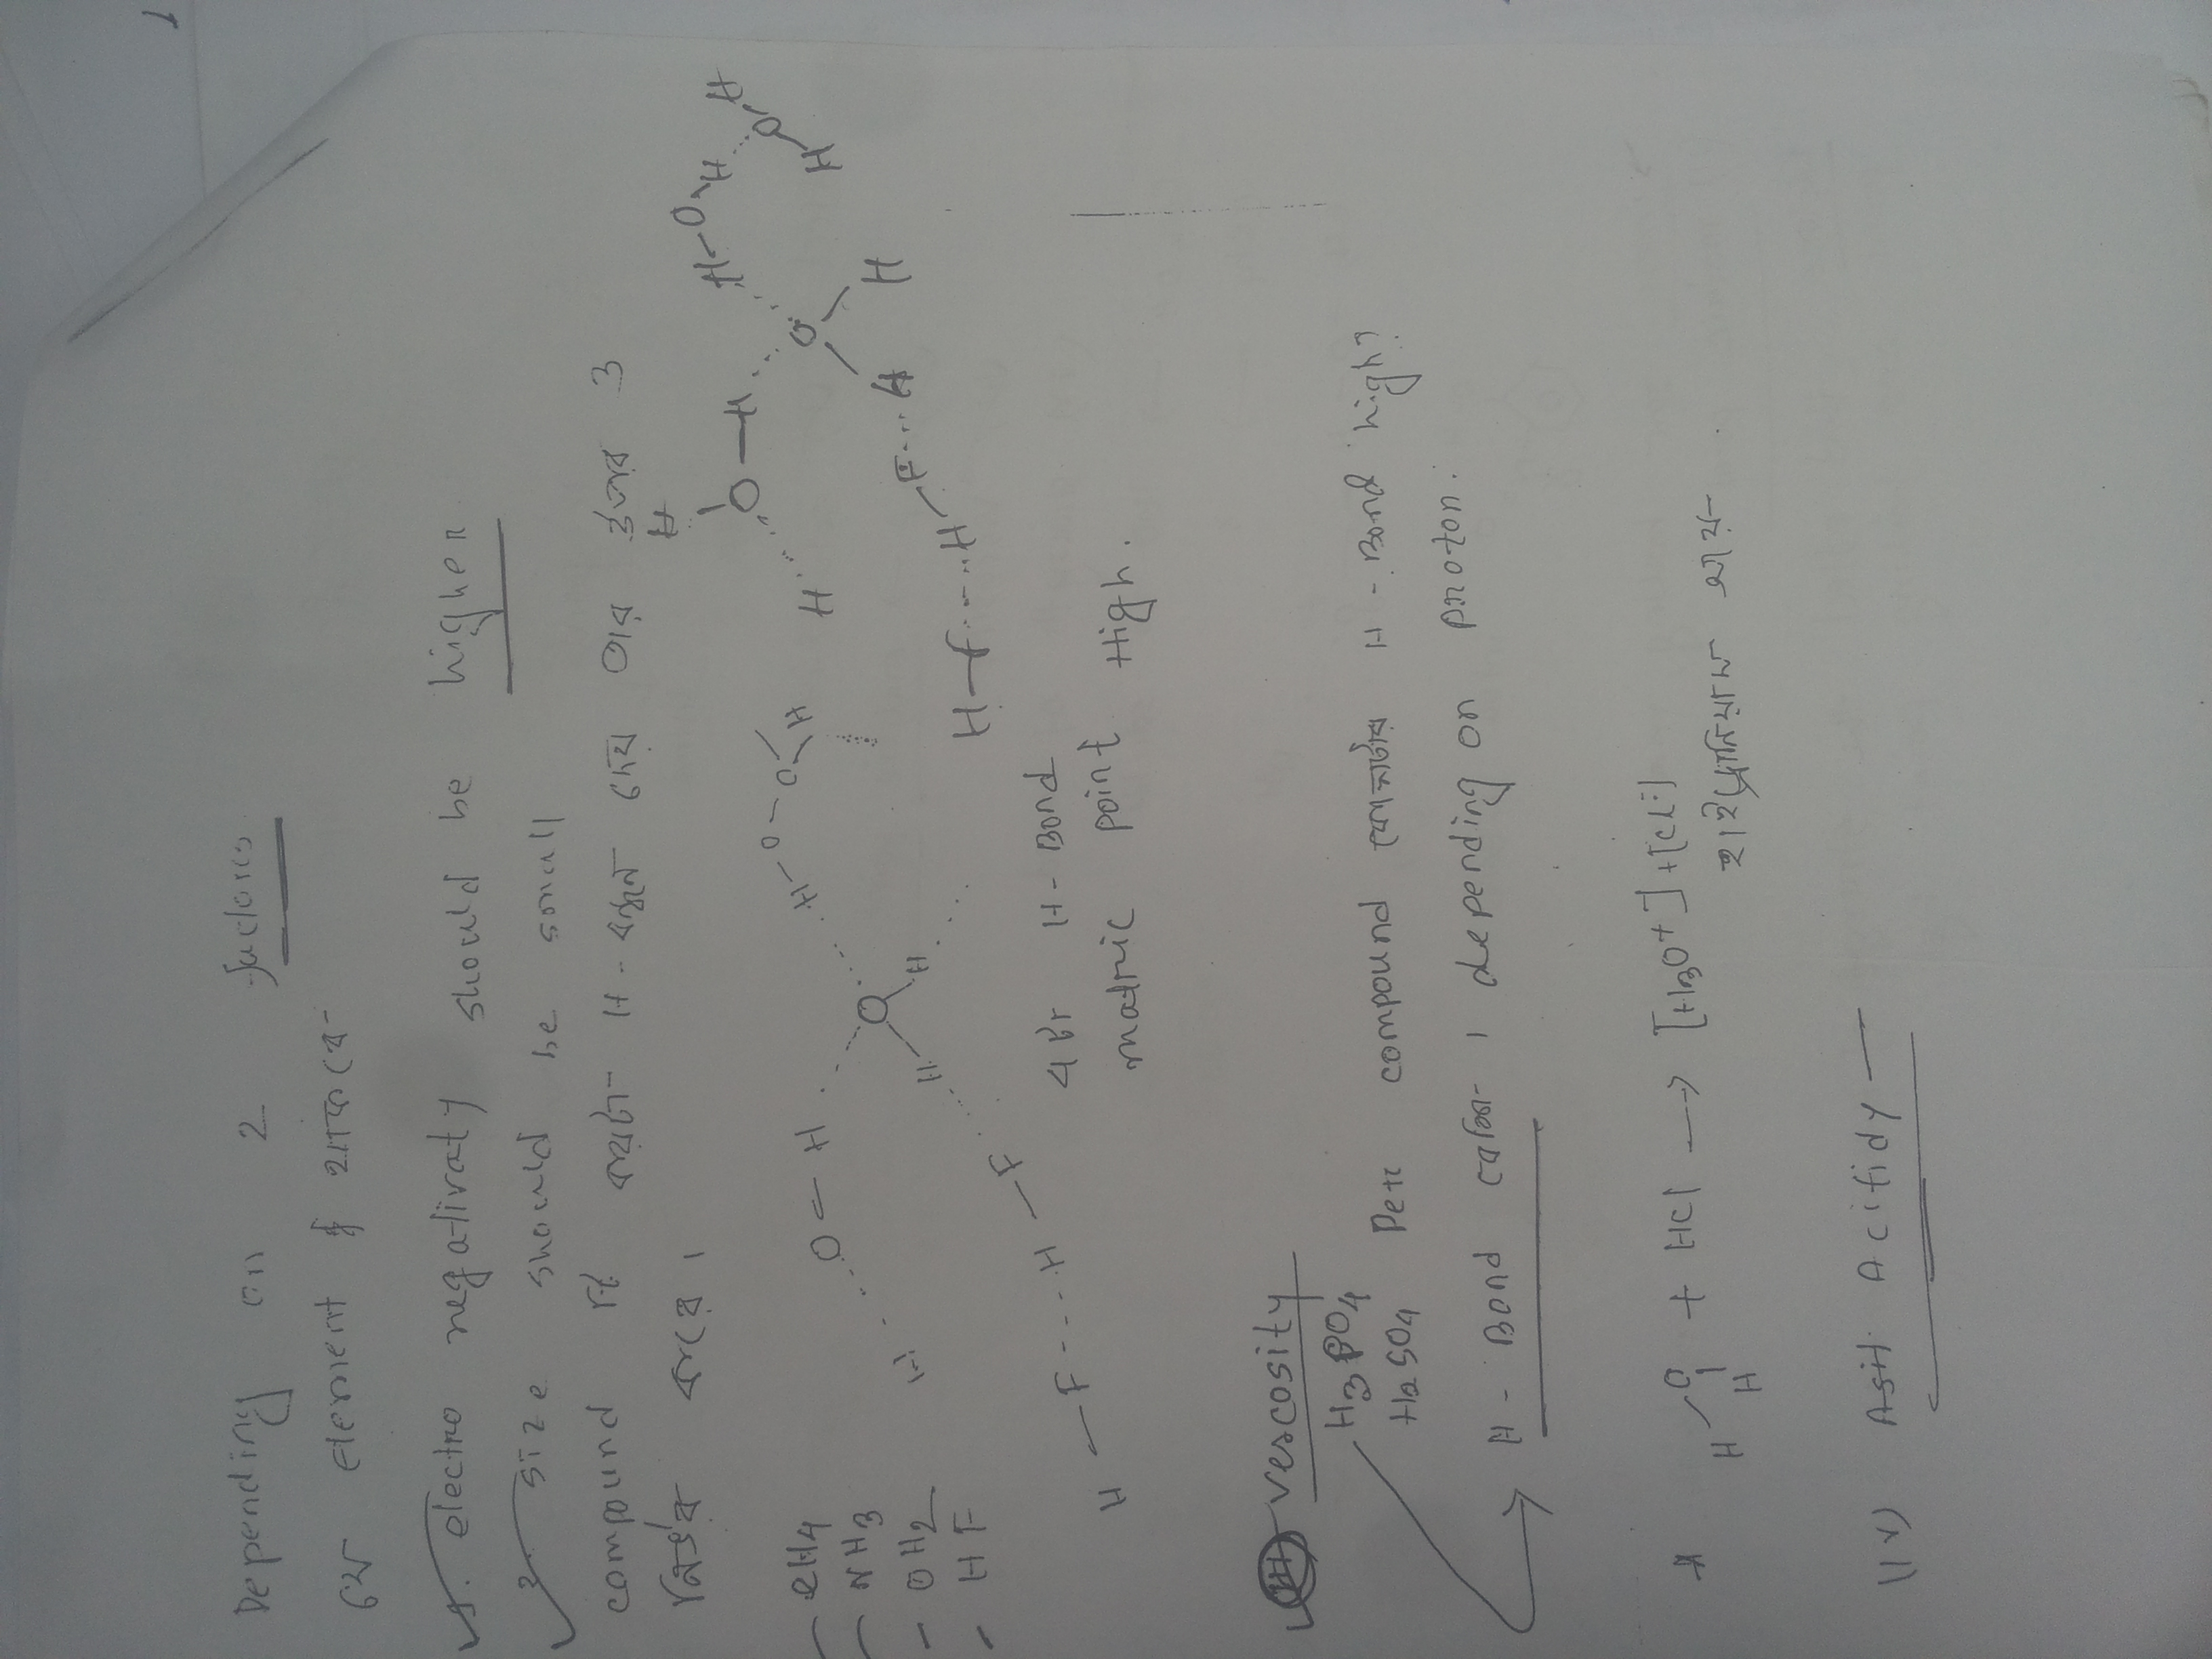 Depending on 2 factors
যে element টু থাকবে
1. electro negativaty should be higher
2. size should be small
compound টি কয়টা H-বন্ধন দেয় তার উপর ও
নির্ভর করে।
CH4
NH3
OH2
HF
H O H O H
H H O H
H O H O H H
H F H F
H F H F H
4 টি H-Bond
matric point High.
vescosity
H3PO4
H2SO4
Per compound কোনটার H-Bond high?
H-Bond বেশি। depending on proton.
* H O H + HCl → [H3O+] + [Cl-]
হাইড্রোনিয়াম
(iv) Acidity